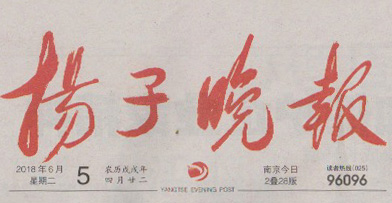 揚子晚報
2018年6月 5 农历戊戌年 南京今日 读者热线(025)
星期二 四月廿二 2叠28版 96096
YANGTSE EVENING POST